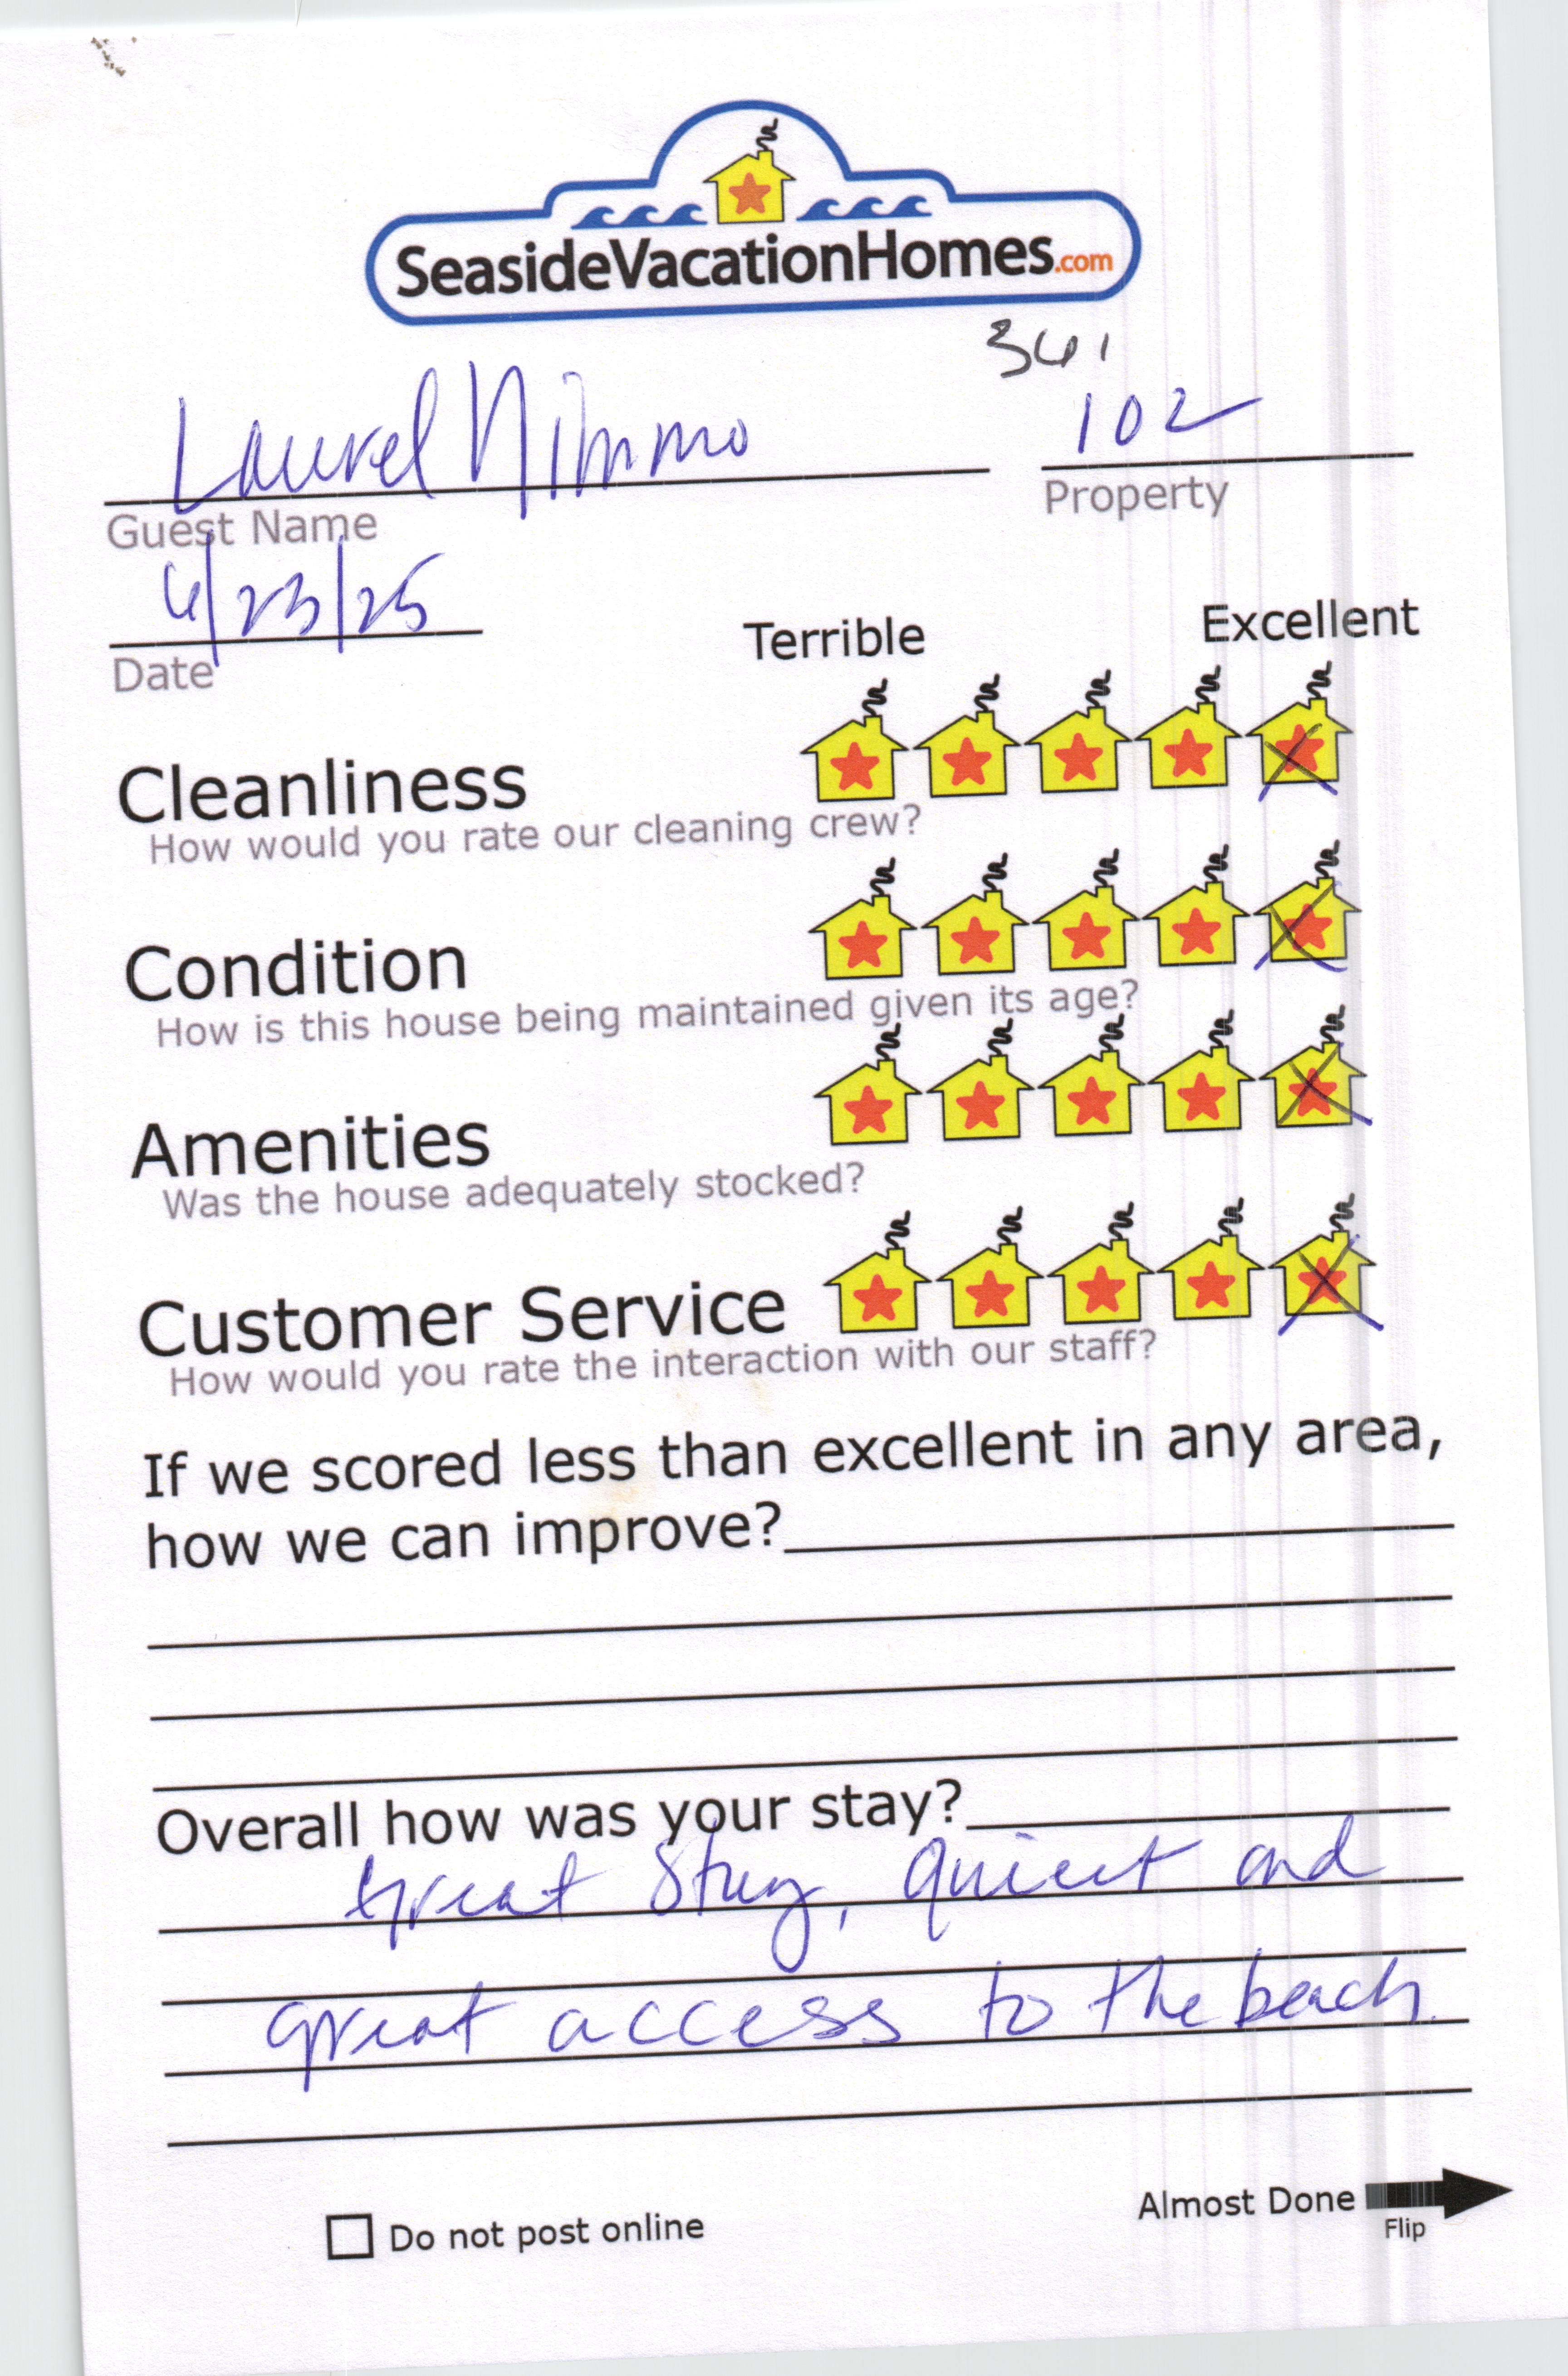 SeasideVacationHomes.com
341
Laurel Nimmo 102
Guest Name Property
6/23/25
Date
Terrible Excellent
Cleanliness
How would you rate our cleaning crew?
Condition
How is this house being maintained given its age?
Amenities
Was the house adequately stocked?
Customer Service
How would you rate the interaction with our staff?
If we scored less than excellent in any area,
how we can improve?
Overall how was your stay?
Great Stay, quiet and
great access to the beach.
Do not post online
Almost Done
Flip